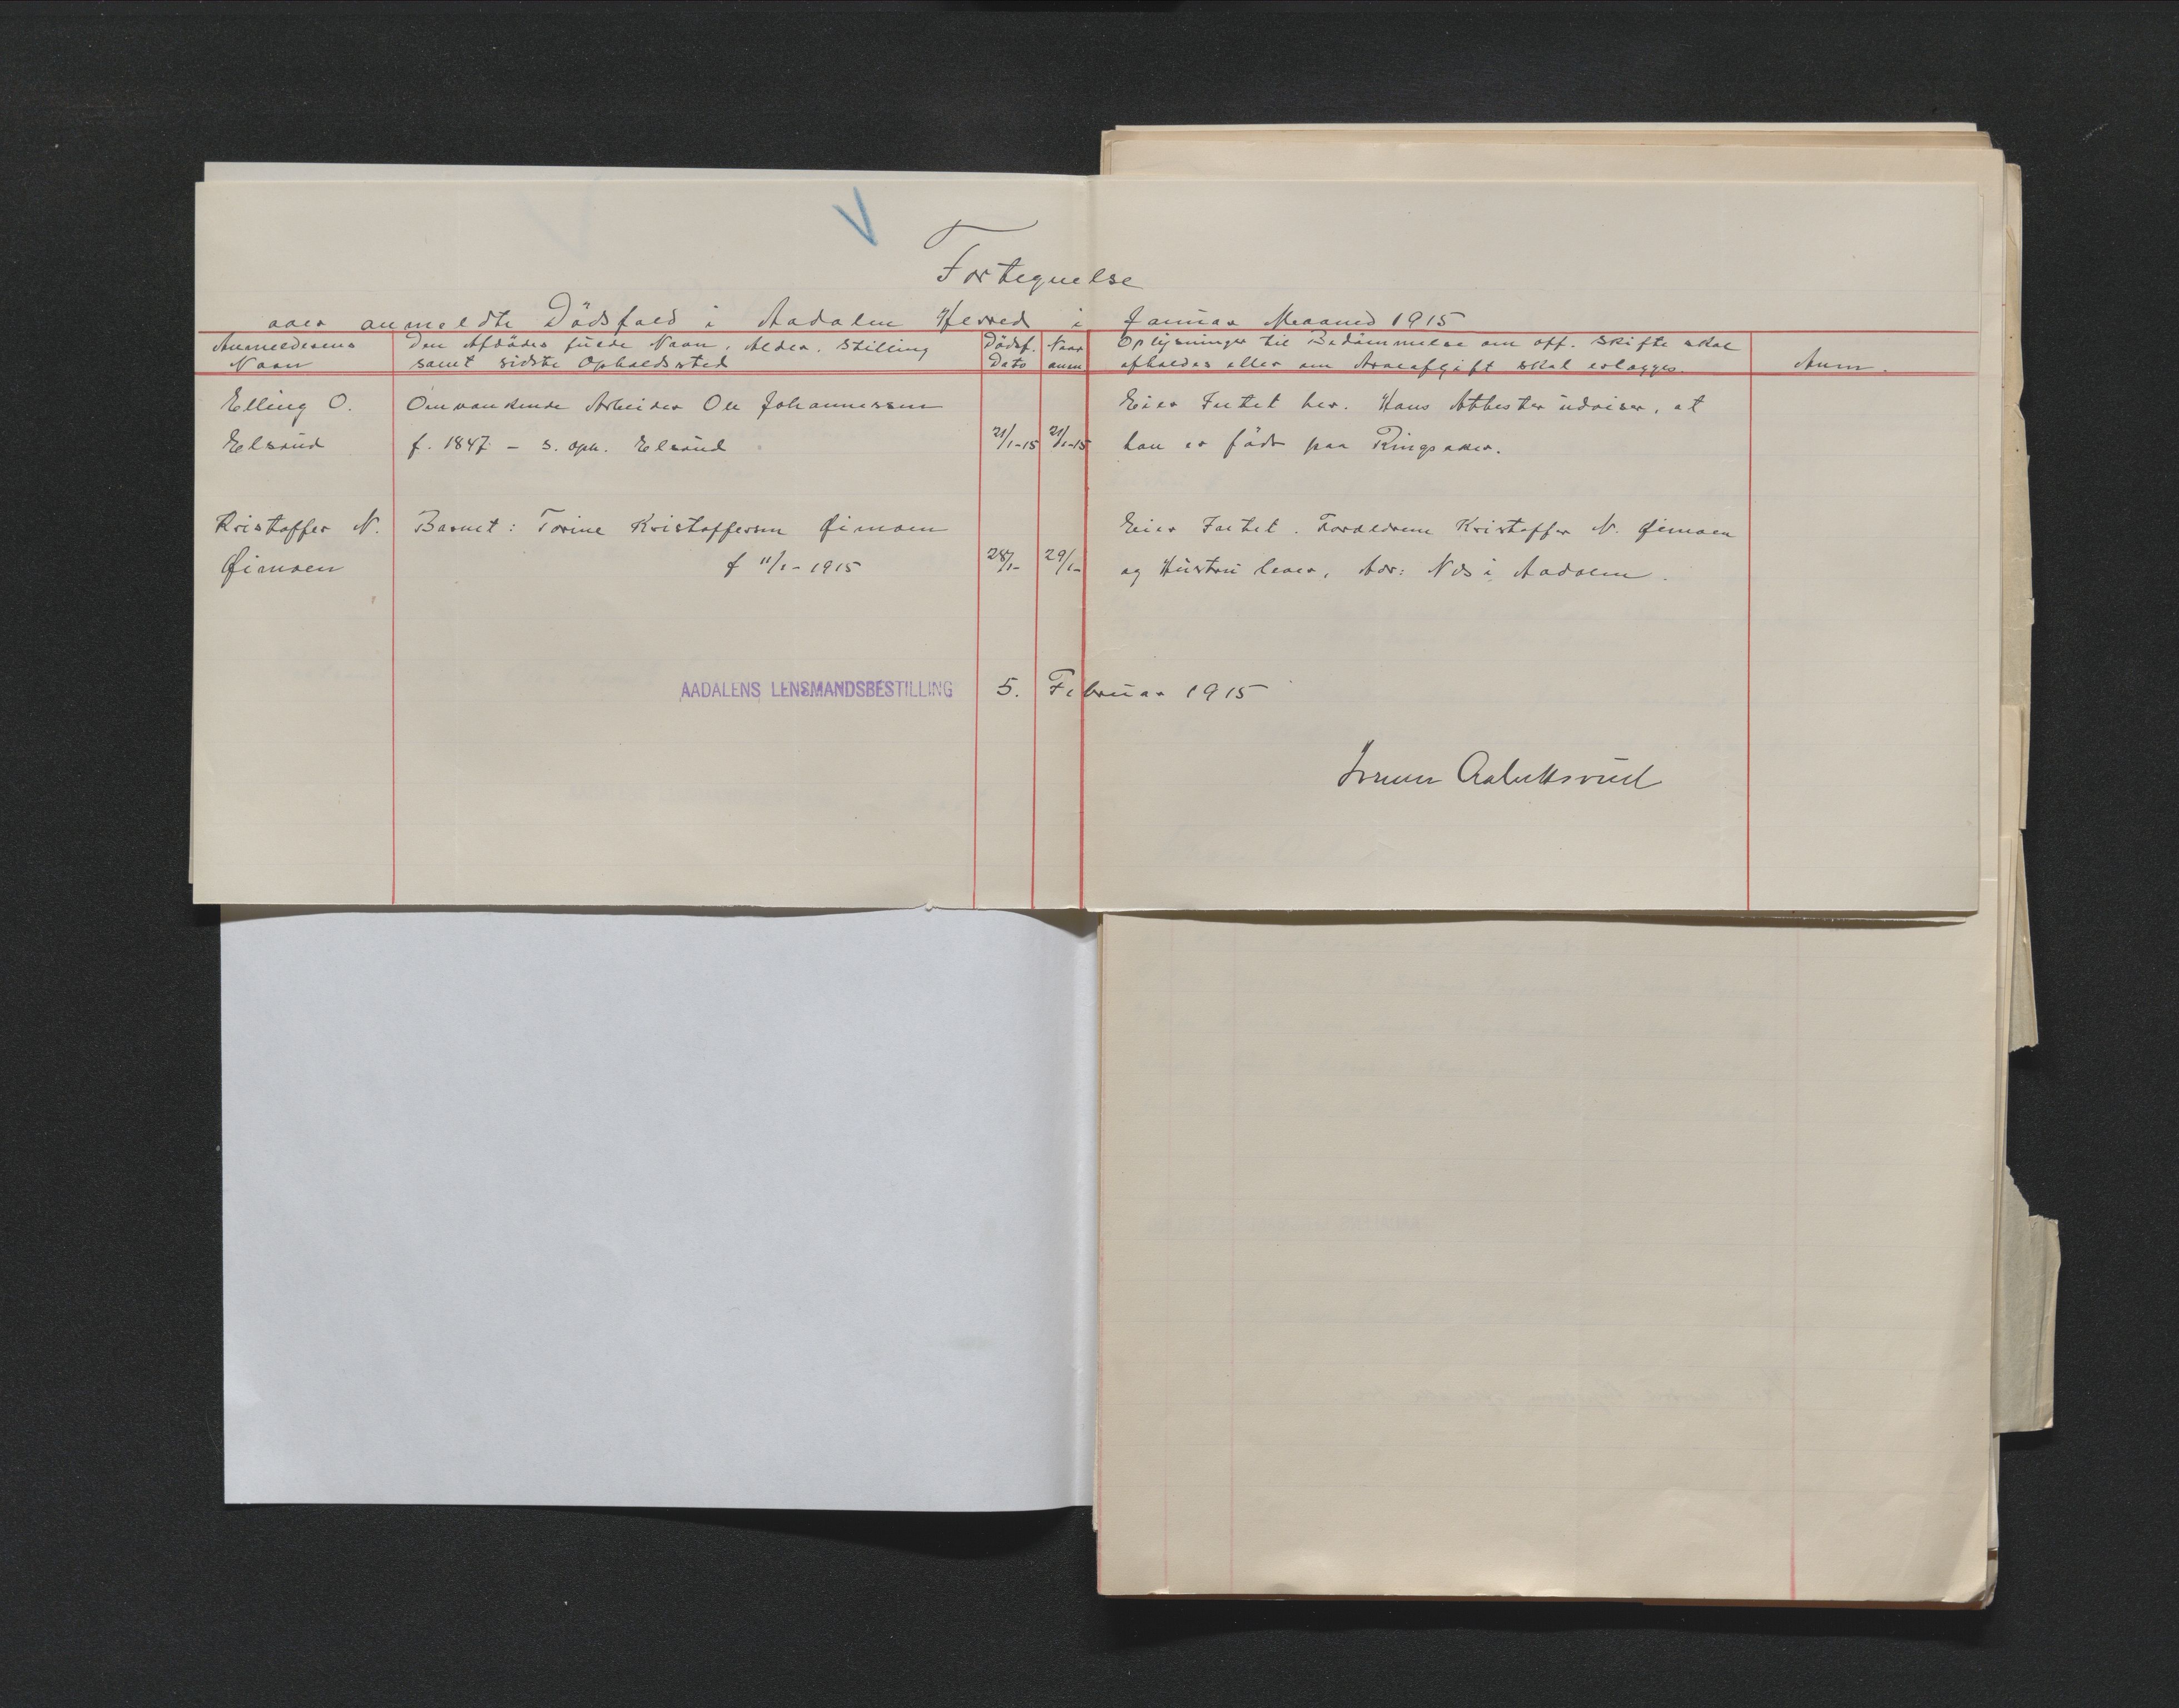 Fortegnelse
over anmeldte Dödsfald i Aadalen Herred i Januar Maaned 1915
Anmelderens Navn
Den Afdödes fulde Navn, Alder, Stilling samt sidste Opholdssted
Dödsf. Dato
Naar anm
Oplysninger til Bedömmelse om off. Skifte skal afholdes eller om Arveafgift skal erlægges.
Anm.
Elling O. Omvankende Arbeider Ole Johannessen Eier Intet her. Hans Attester udviser, at
Elsrud f. 1847 - s. oph. Elsrud 21/1-15 21/1-15 han er født paa Ringsaker.
Kristoffer N. Barnet: Torine Kristoffersen Øimoen Eier Intet. Forældrene Kristoffer N. Øimoen
Øimoen f 11/1-1915 28/1- 29/1- og Hustru lever, Adr: Næs i Aadalen.
AADALENS LENSMANDSBESTILLING 5. Februar 1915